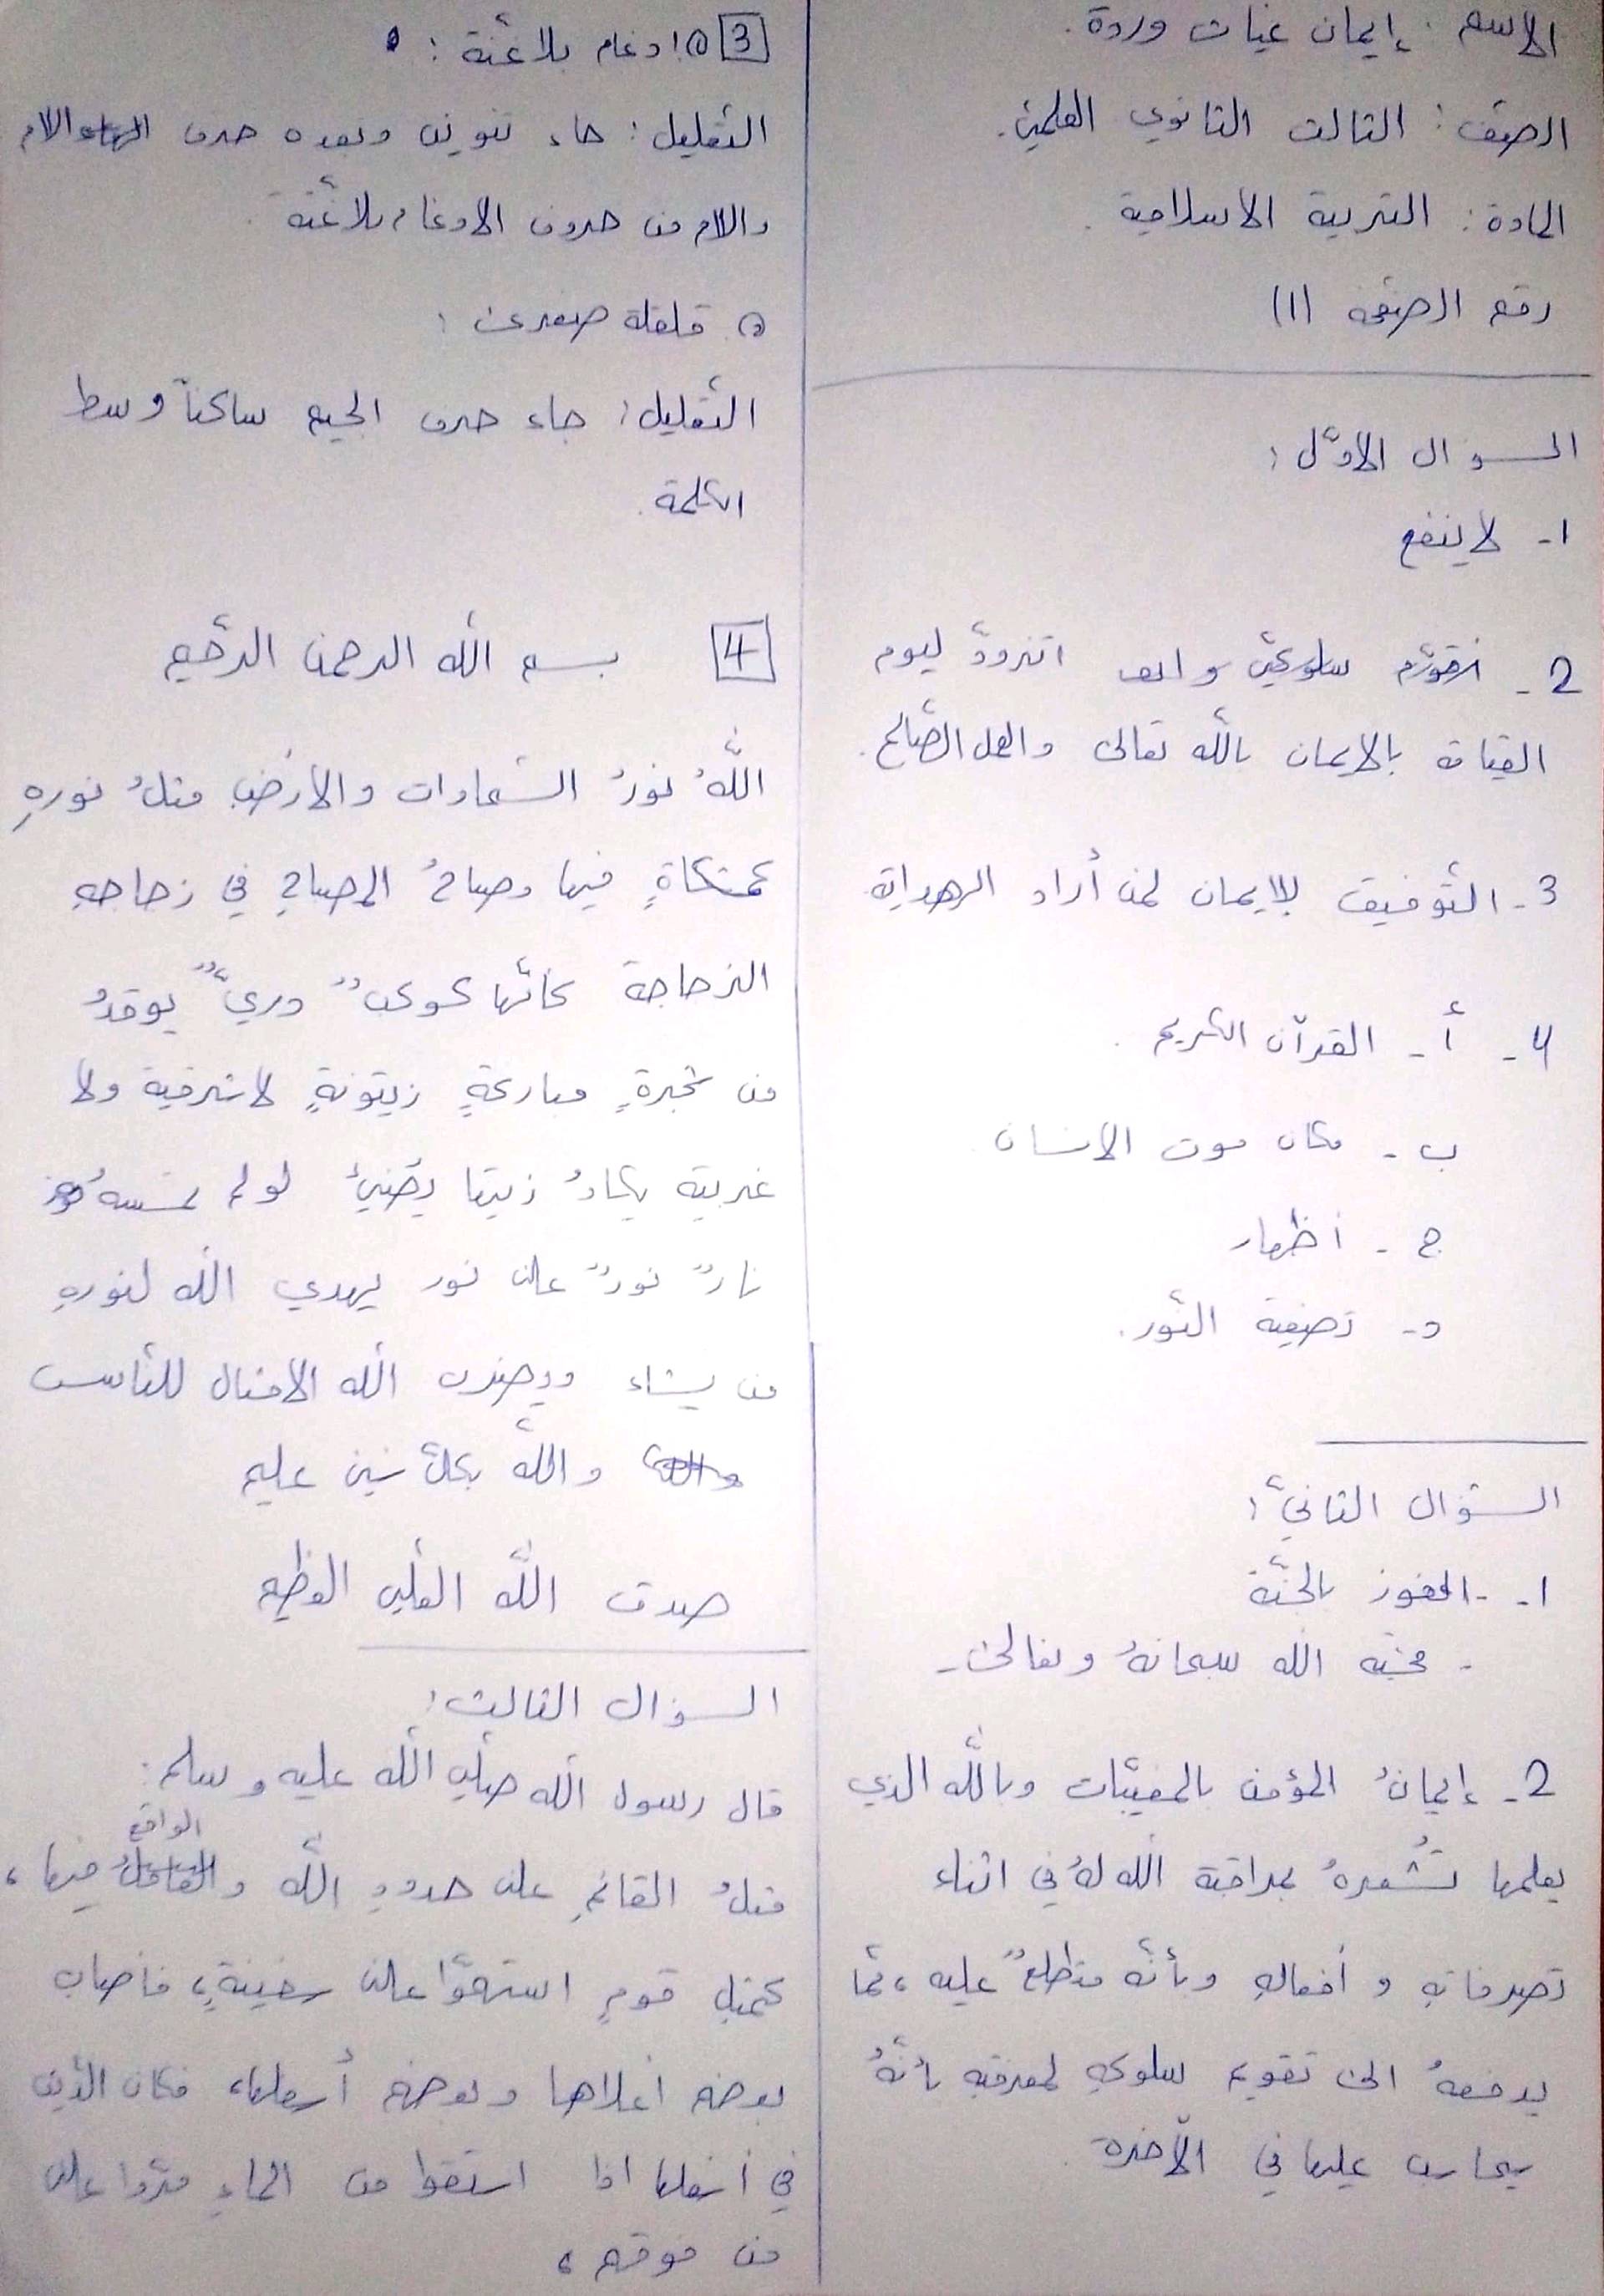 الاسم : إيمان غياث وردة.
الصف : الثالث الثانوي العلمي.
المادة : التربية الاسلامية.
رقم الصفحة (1)
السؤال الأول :
1- لا ينفع
2- اتزود ليوم
القيامة بالإيمان بالله تعالى والعمل الصالح.
3- التوفيق للإيمان لمن أراد الهداية.
4- أ- القرآن الكريم.
ب- مكان موت الانسان.
ج- اظهار
د- تصفية النور.
السؤال الثاني :
1- - الفوز بالجنة
- محبة الله سبحانهُ وتعالى -
2- إيمانُ المؤمن بالمغيبات وبالله الذي
يعلمها تُشعرهُ بمراقبة الله لهُ في اثناء
تصرفاتهِ و أفعالهِ وبأنه مطلعٌ عليه، مما
يدفعهُ الى تقويم سلوكهِ لمعرفتهِ بأنهُ
سيحاسب عليها في الآخرة.
3 ① ادغام بلا غنة :
التعليل : جاء تنوين وبعده حرف اللام
واللام من حروف الادغام بلا غنة.
② قلقلة صغرى :
التعليل : جاء حرف الجيم ساكناً وسط
الكلمة.
4 بسم الله الرحمن الرحيم
اللَّهُ نورُ السَّماوات والأرضِ مثلُ نورهِ
كمشكاةٍ فيها مصباحُ المصباح في زجاجهِ
الزجاجة كأنّها كوكبٌ دريٌّ يوقدُ
من شجرةٍ مباركةٍ زيتونةٍ لا شرقية ولا
غربية يكادُ زيتها يُضيئُ لو لم تمسسهُ
نارٌ نورٌ على نور يهدي الله لنورهِ
من يشاء ويضرب الله الامثال للناس
والله بكلّ شيئ عليم
صدق الله العلي العظيم
السؤال الثالث :
قال رسول الله صلى الله عليه وسلم :
مثلُ القائمِ على حدودِ اللَّه و الواقع فيها،
كمثلِ قومٍ استهمّوا على سفينةٍ، فأصاب
بعضهم أعلاها وبعضهم أسفلها، فكان الذين
في أسفلها اذا استقوا من الماءِ مرّوا على
من فوقهم،